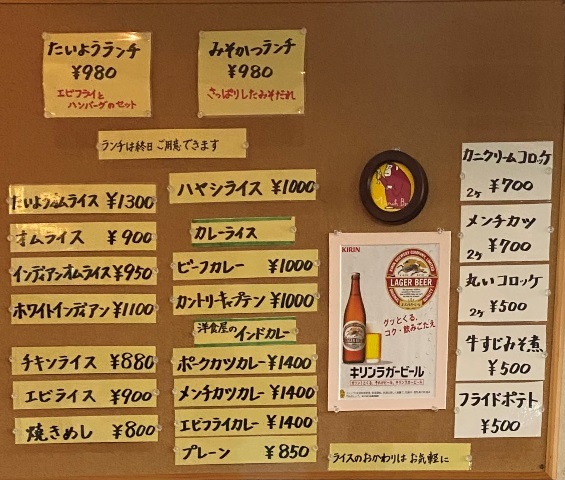 たいようランチ
¥980
エビフライと
ハンバーグのセット
みそかつランチ
¥980
さっぱりしたみそだれ
ランチは終日ご用意できます
たいようオムライス ¥1300
オムライス ¥900
インディアンオムライス ¥950
ホワイトインディアン ¥1100
チキンライス ¥880
エビライス ¥900
焼きめし ¥800
ハヤシライス ¥1000
カレーライス
ビーフカレー ¥1000
カントリーキャプテン ¥1000
洋食屋の インドカレー
ポークカツカレー ¥1400
メンチカツカレー ¥1400
エビフライカレー ¥1400
プレーン ¥850
KIRIN
LAGER BEER
グッとくる、
コク・飲みごたえ
キリンラガービール
カニクリームコロッケ
2ケ ¥700
メンチカツ
2ケ ¥700
丸いコロッケ
2ケ ¥500
牛すじみそ煮
¥500
フライドポテト
¥500
ライスのおかわりは お気軽に